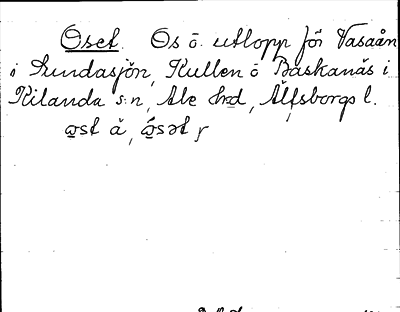 Oset. Os o. utlopp för Vasaån
i Sundasjön, Kullen o Baskanäs i
Kilanda s:n, Ale hd, Älfsborgs l.